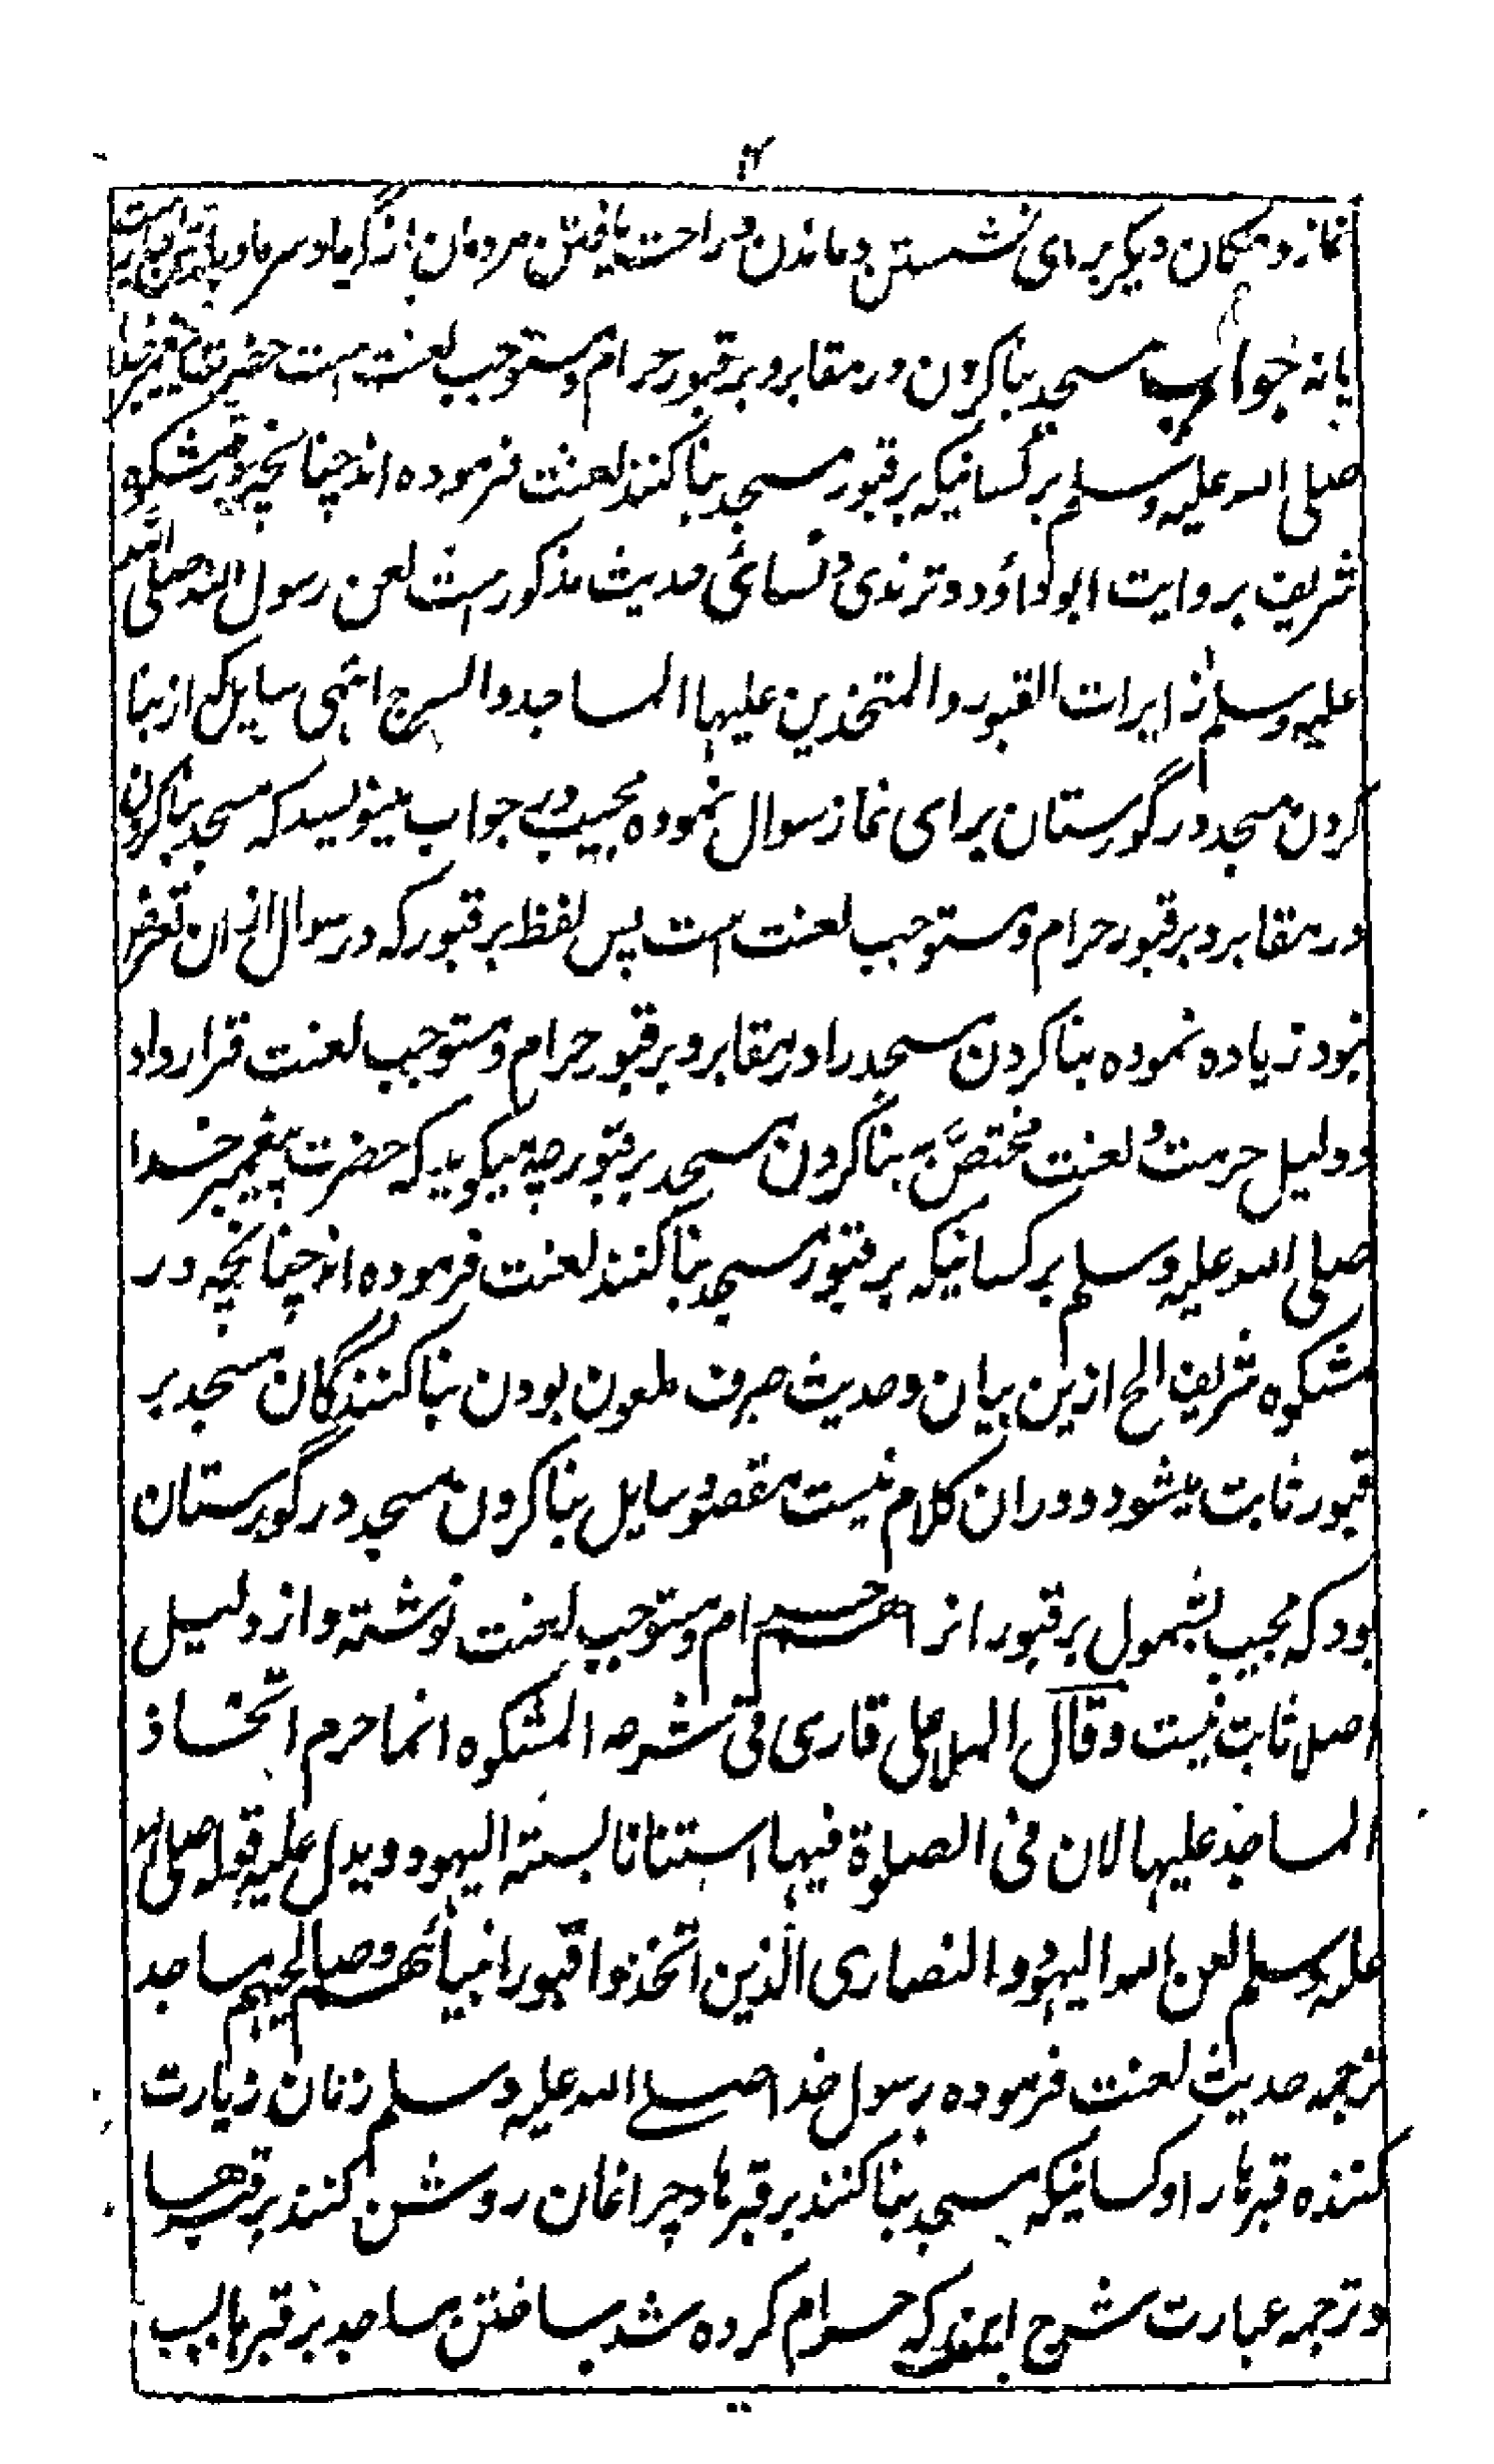 نماز و مکان دیگر برای نشستن و ماندن و راحت یافتن مردمان از گرما و سرما و
یا نه جواب مسجد بنا کردن در مقابر و بر قبور حرام و مستوجب لعنت است حضرت پیغمبر خدا
صلی الله علیه وسلم بر کسانیکه بر قبور مسجد بنا کنند لعنت فرموده اند چنانچه در مشکوه
شریف بروایت ابو داؤد و ترمذی و نسائی حدیث مذکور است لعن رسول الله صلی الله
علیه وسلم زایرات القبور والمتخذین علیها المساجد والسرج انتهی سایل که از بنا
کردن مسجد در گورستان برای نماز سوال نموده مجیب در جواب مینویسد که مسجد بنا کردن
در مقابر و بر قبور حرام و مستوجب لعنت است پس لفظ بر قبور که در سوال ازان تعرض
نبود زیاده نموده بنا کردن مسجد را در مقابر و بر قبور حرام و مستوجب لعنت قرار داد
و دلیل حرمت و لعنت مختص به بنا کردن مسجد بر قبور چه میگوید که حضرت پیغمبر خدا
صلی الله علیه وسلم بر کسانیکه بر قبور مسجد بنا کنند لعنت فرموده اند چنانچه در
مشکوه شریف الخ ازین بیان و حدیث صرف ملعون بودن بنا کنندگان مسجد بر
قبور ثابت میشود و دران کلام نیست مقصود سایل بنا کردن مسجد در گورستان
بود که مجیب بشمول بر قبور انرا هم حرام و مستوجب لعنت نوشته و از دلیل
اصلا ثابت نیست وقال الملا علی قاری فی شرحه المشکوه انما حرم اتخاذ
المساجد علیها لان فی الصلوة فیها استنانا بسنة الیهود ویدل علیه قوله صلی الله
علیه وسلم لعن الله الیهود والنصاری الذین اتخذوا قبور انبیائهم وصالحیهم مساجد
ترجمه حدیث لعنت فرموده رسول خدا صلے الله علیه وسلم زنان زیارت
کننده قبرها را و کسانیکه مسجد بنا کنند بر قبرها و چراغان روشن کنند بر قبرها
و ترجمه عبارت شرح اینکه حرام کرده شد ساختن مساجد بر قبرها بسبب